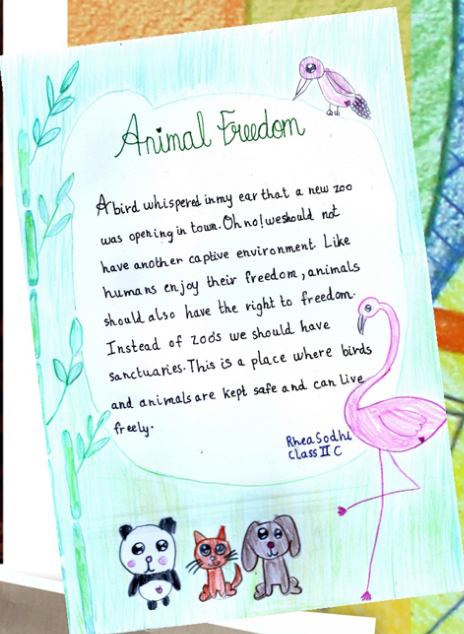 Animal Freedom
A bird whispered in my ear that a new zoo
was opening in town. Oh no! we should not
have another captive environment. Like
humans enjoy their freedom, animals
should also have the right to freedom.
Instead of zoo's we should have
sanctuaries. This is a place where birds
and animals are kept safe and can live
freely.
Rhea Sodhi
Class II C